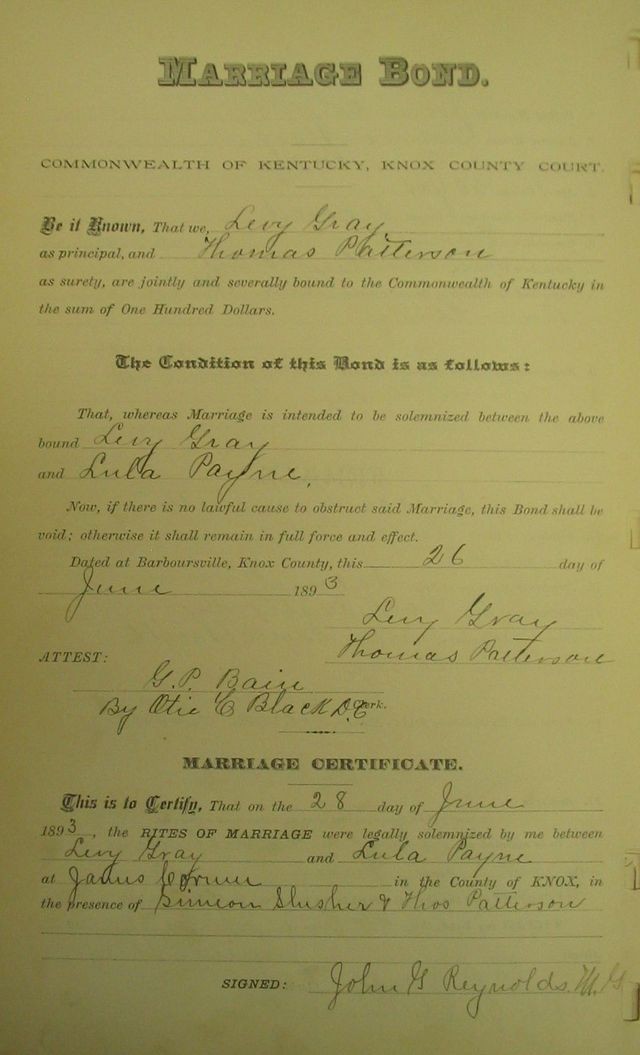 MARRIAGE BOND.
COMMONWEALTH OF KENTUCKY, KNOX COUNTY COURT.
Be it Known, That we, Levy Gray
as principal, and Thomas Patterson
as surety, are jointly and severally bound to the Commonwealth of Kentucky in
the sum of One Hundred Dollars.
The Condition of this Bond is as follows:
That, whereas Marriage is intended to be solemnized between the above
bound Levy Gray
and Lula Payne,
Now, if there is no lawful cause to obstruct said Marriage, this Bond shall be
void; otherwise it shall remain in full force and effect.
Dated at Barboursville, Knox County, this 26 day of
June 1893
Levy Gray
Thomas Patterson
ATTEST:
G.P. Bain
By Otie C Black D.C Clerk.
MARRIAGE CERTIFICATE.
This is to Certify, That on the 28 day of June
1893, the RITES OF MARRIAGE were legally solemnized by me between
Levy Gray and Lula Payne
at in the County of KNOX, in
the presence of Simeon Slusher & Thos Patterson
SIGNED: John G Reynolds. M.G.